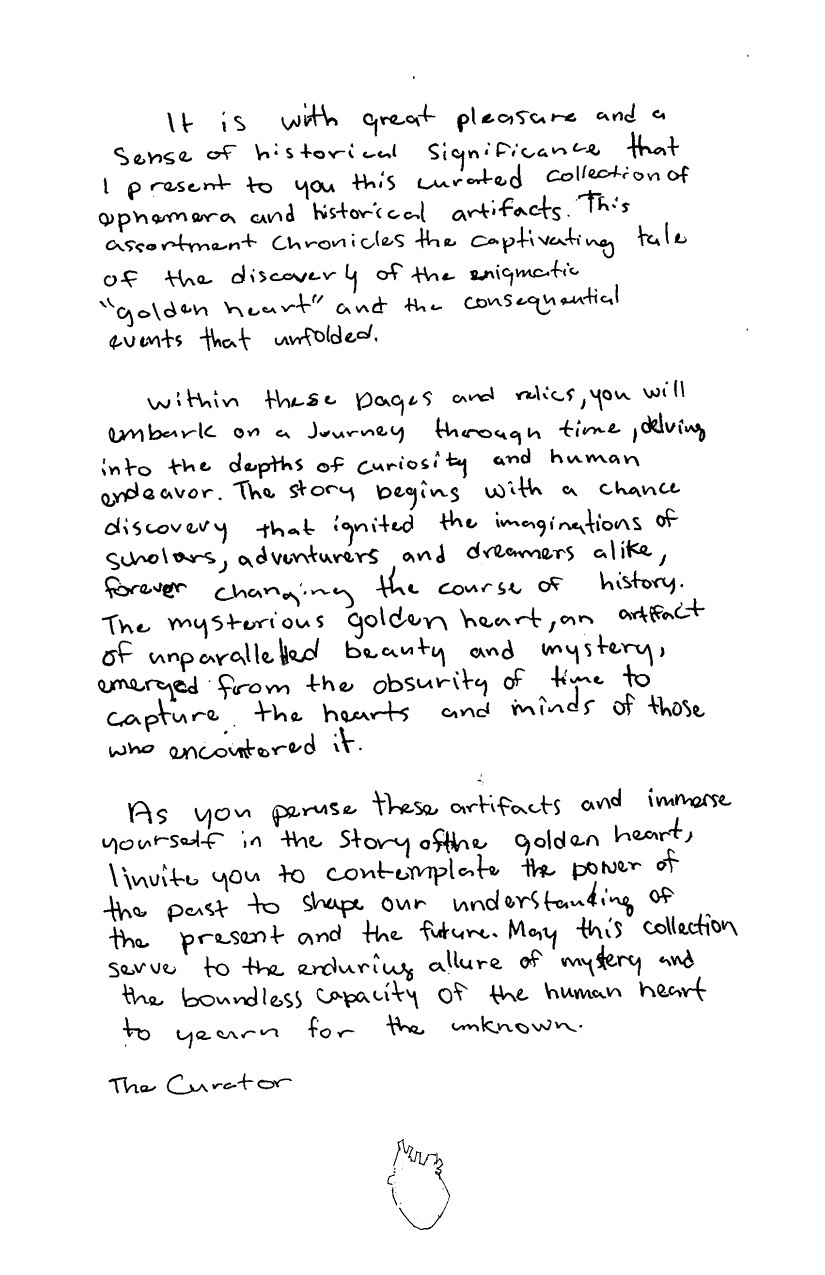 It is with great pleasure and a
sense of historical significance that
I present to you this curated collection of
ephemera and historical artifacts. This
assortment chronicles the captivating tale
of the discovery of the enigmatic
"golden heart" and the consequential
events that unfolded.
Within these pages and relics, you will
embark on a Journey through time, delving
into the depths of curiosity and human
endeavor. The story begins with a chance
discovery that ignited the imaginations of
scholars, adventurers and dreamers alike,
forever changing the course of history.
The mysterious golden heart, an artifact
of unparallelled beauty and mystery,
emerged from the obsurity of time to
capture the hearts and minds of those
who encountered it.
As you peruse these artifacts and immerse
yourself in the Story of the golden heart,
I invite you to contemplate the power of
the past to shape our understanding of
the present and the future. May this collection
serve to the enduring allure of mystery and
the boundless capacity of the human heart
to yearn for the unknown.
The Curator